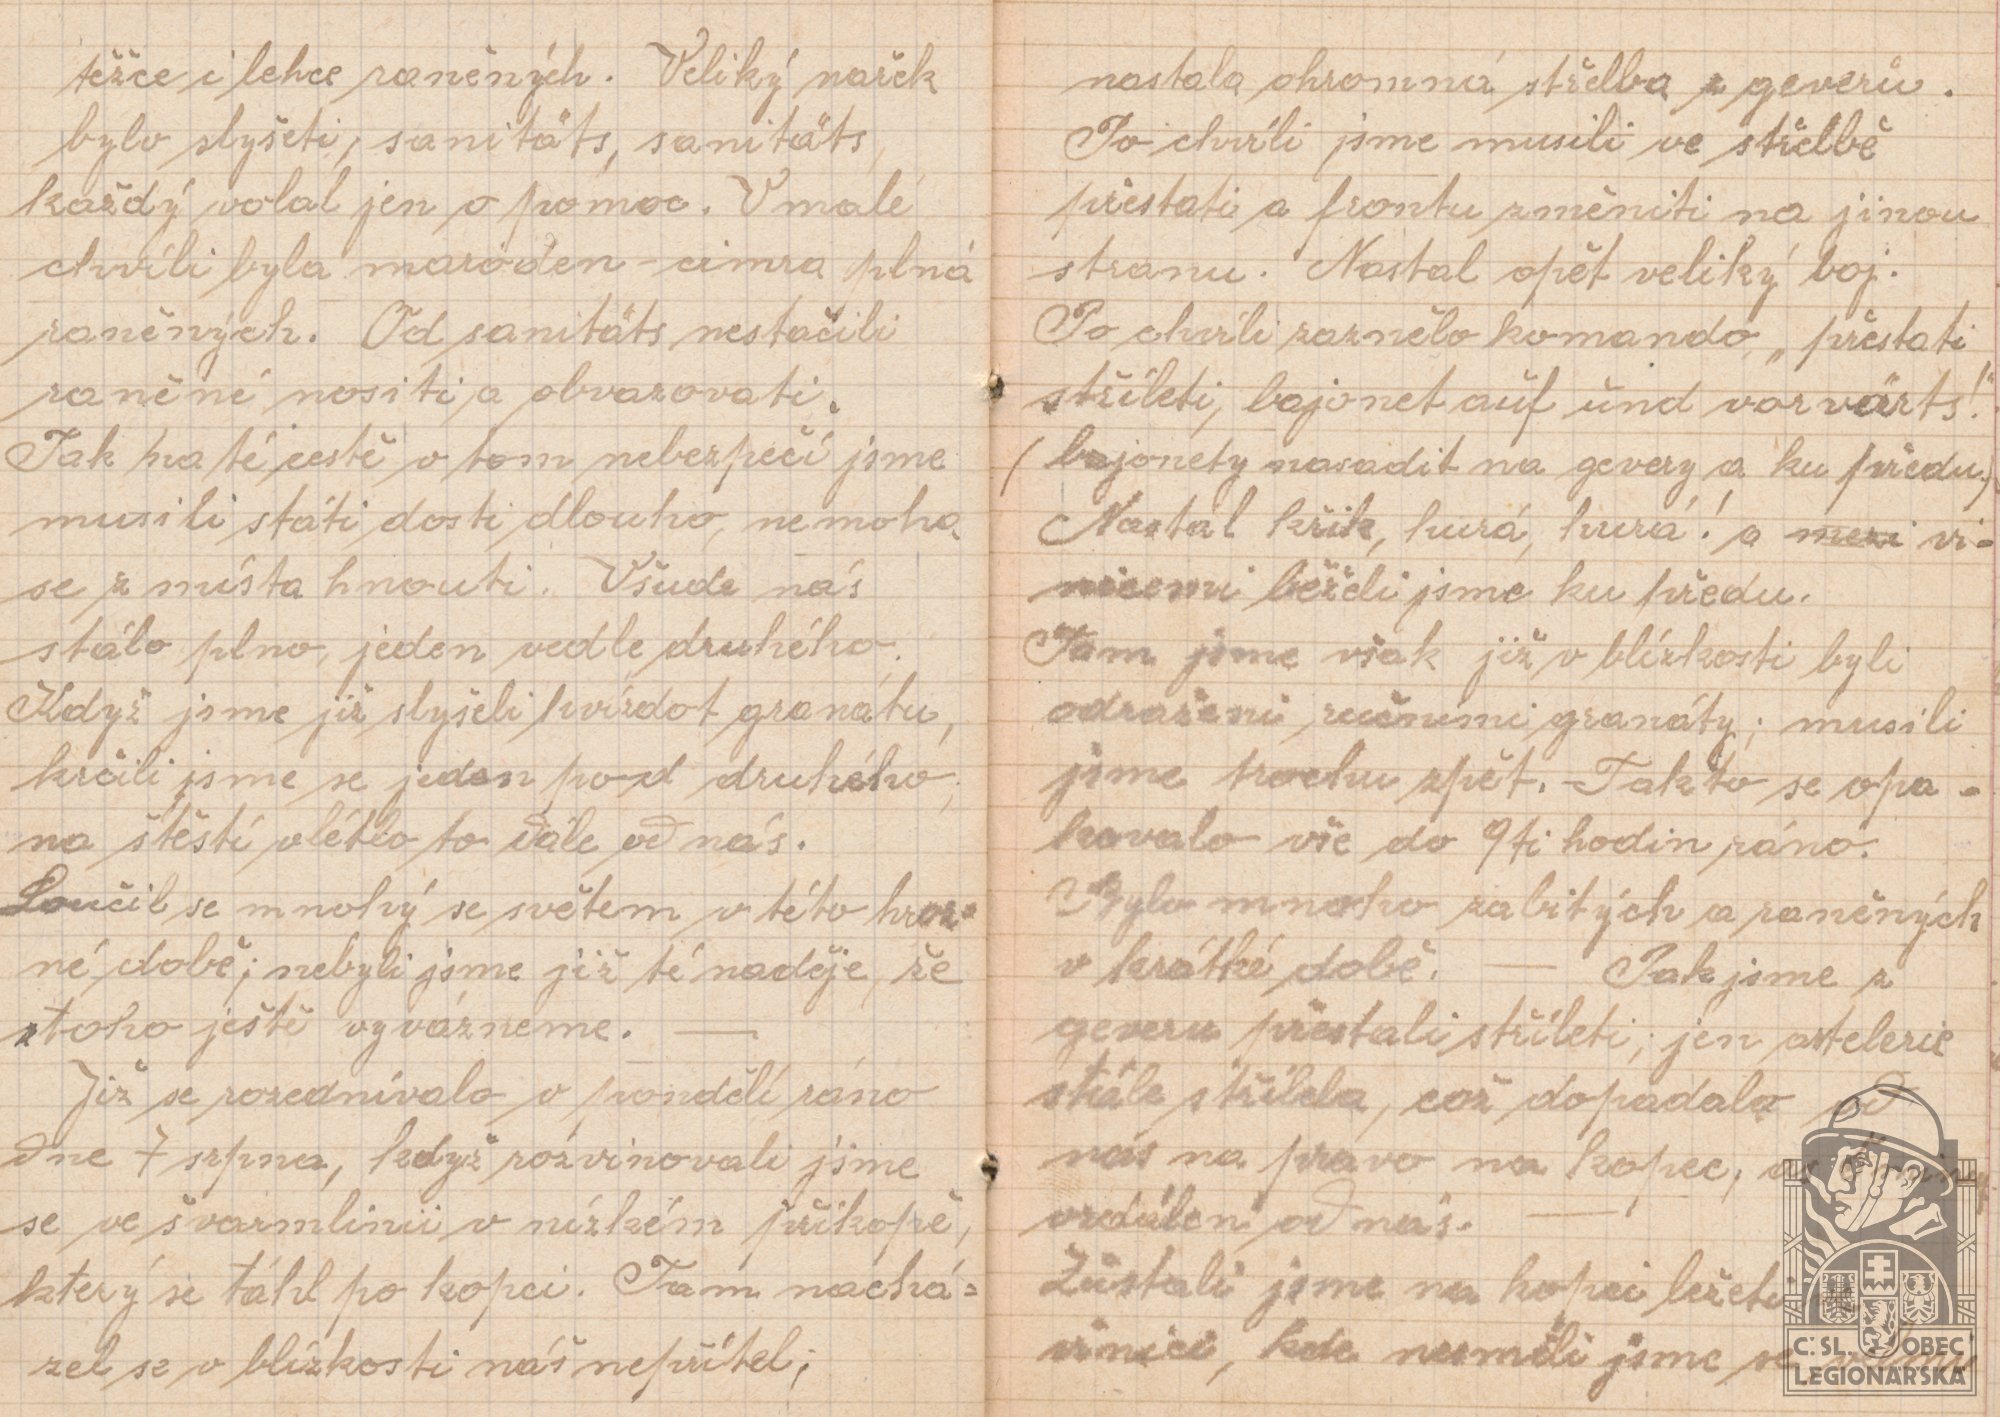 těžce i lehce raněných. Veliký nařek
bylo slyšeti, sanitäts, sanitäts,
každý volal jen o pomoc. V malé
chvíli byla maröden-cimra plná
raněných. Od sanitäts nestačili
raněné nositi a obvazovati.
Tak na té cestě v tom nebezpečí jsme
musili státi dosti dlouho, nemoha
se z místa hnouti. Všude nás
stálo plno, jeden vedle druhého.
Když jsme již slyšeli hvízdot granátu,
krčili jsme se jeden pod druhého,
na štěstí vlétlo to dále od nás.
Loučil se mnohý se světem v této hroz-
né době; nebyli jsme již té naděje, že
z toho ještě vyvázneme. —
Již se rozednívalo v pondělí ráno
dne 7 srpna, když rozvinovali jsme
se ve švarmlinii v nízkém příkopě,
který se táhl po kopci. Tam nachá=
zel se v blízkosti náš nepřítel;
nastala ohromná střelba z geverů.
Po chvíli jsme musili ve střelbě
přestati a frontu změniti na jinou
stranu. Nastal opět veliký boj.
Po chvíli zaznělo komando „přestati
stříleti, bajonet auf und vorvärts!"
(bajonety nasadit na gevery a ku předu.)
Nastal křik, hurá, hurá! a mezi vi-
nicemi běželi jsme ku předu.
Tam jsme však již v blízkosti byli
odraženi ručními granáty; musili
jsme trochu zpět. – Takto se opa-
kovalo vše do 9ti hodin ráno.
Bylo mnoho zabitých a raněných
v krátké době. — Tak jsme z
geveru přestali stříleti; jen artelerie
stále střílela, což dopadalo od
nás na pravo na kopec,
vzdálen od nás. —
Zůstali jsme na kopci ležeti
vinici, kde nesměli jsme se
Č. SL. OBEC
LEGIONÁŘSKÁ